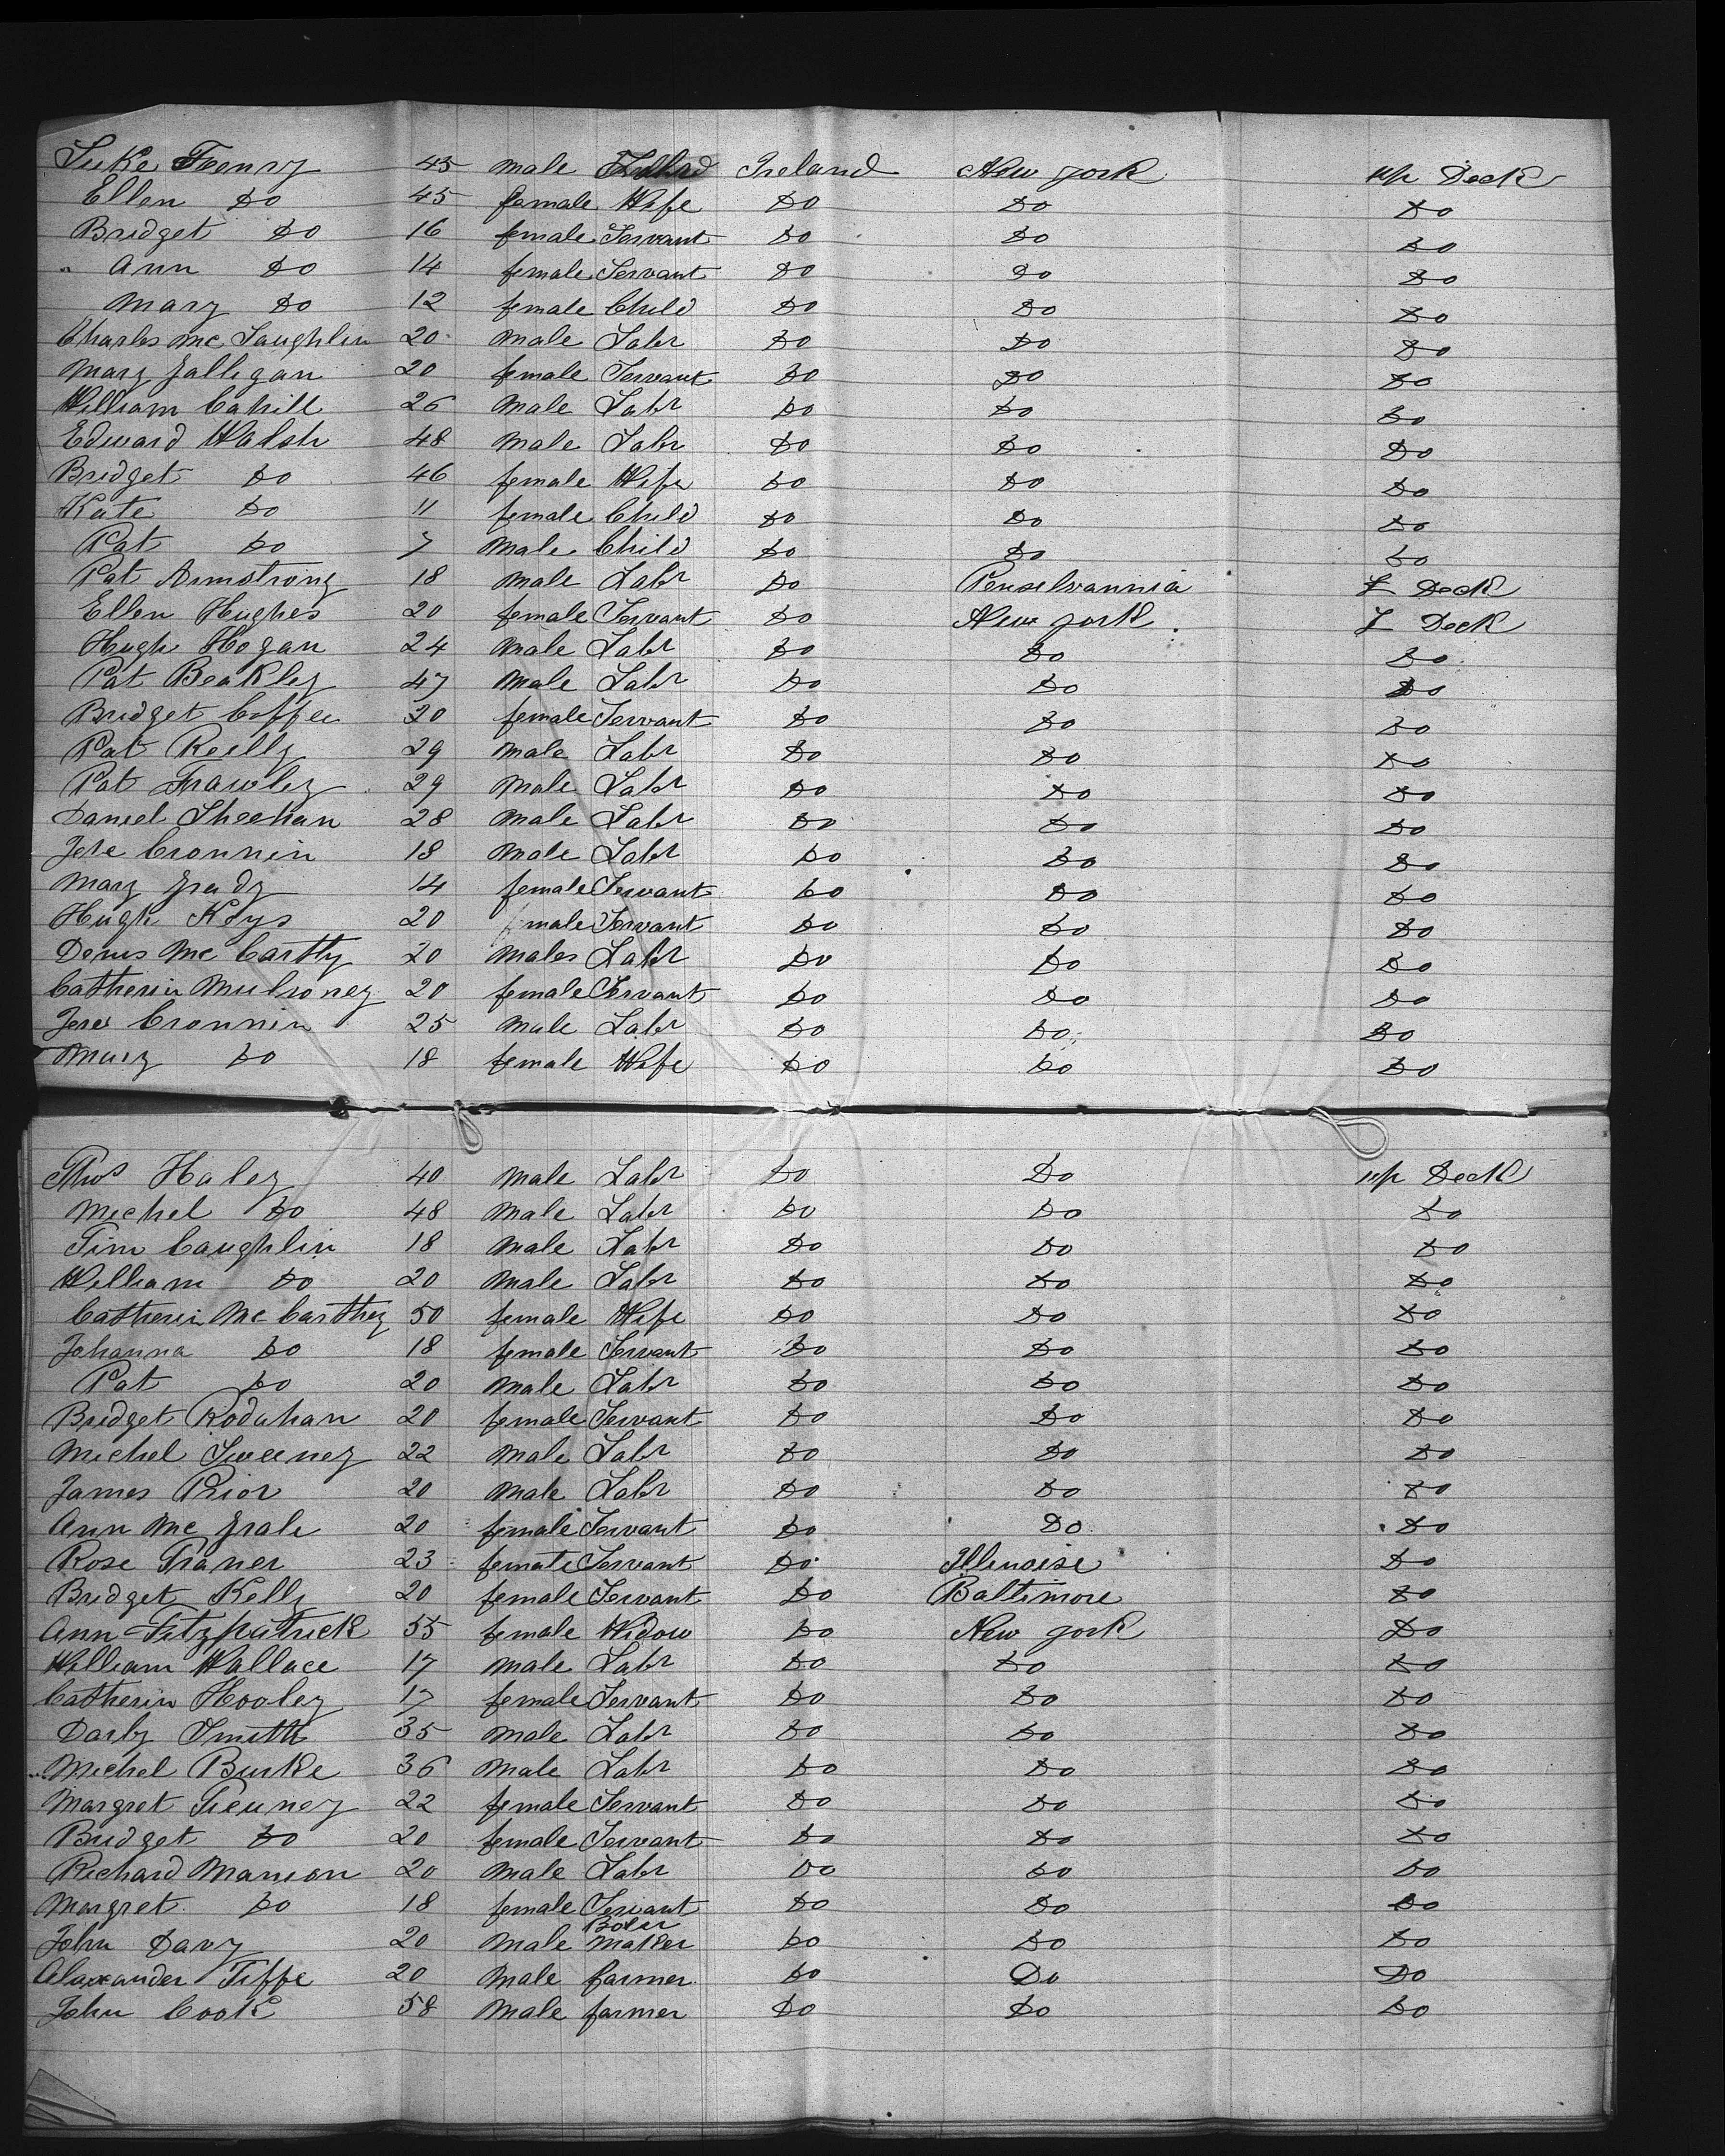 Luke Feenry 45 male Ireland New york up Deck
Ellen Do 45 female Wife Do Do Do
Bridget Do 16 female Servant Do Do Do
" Ann Do 14 female Servant Do Do Do
Mary Do 12 female Child Do Do Do
Charles Mc Laughlin 20 male Labr Do Do Do
Mary Galligan 20 female Servant Do Do Do
William Cahill 26 male Labr Do Do Do
Edward Walsh 48 male Labr Do Do Do
Bridget Do 46 female Wife Do Do Do
Kate Do 11 female Child Do Do Do
Pat Do 7 male Child Do Do Do
Pat Armstrong 18 male Labr Do Penselvannia L Deck
Ellen Hughes 20 female Servant Do New york L Deck
Hugh Hogan 24 male Labr Do Do Do
Pat Beakley 47 male Labr Do Do Do
Bridget Coffee 20 female Servant Do Do Do
Pat Reilly 29 male Labr Do Do Do
Pat Frawley 29 male Labr Do Do Do
Daniel Sheehan 28 male Labr Do Do Do
Jere Cronnin 18 male Labr Do Do Do
Mary Grady 14 female Servant Do Do Do
Hugh Keys 20 male Servant Do Do Do
Denis Mc Carthy 20 males Labr Do Do Do
Catherin Mulroney 20 female Servant Do Do Do
Jere Cronnin 25 male Labr Do Do Do
Mary Do 18 female Wife Do Do Do
Thos Haley 40 male Labr Do Do up Deck
Michel Do 48 male Labr Do Do Do
Tim Caughlin 18 male Labr Do Do Do
William Do 20 male Labr Do Do Do
Catherin Mc Carthey 50 female Wife Do Do Do
Johanna Do 18 female Servant Do Do Do
Pat Do 20 male Labr Do Do Do
Bridget Rodahan 20 female Servant Do Do Do
Michel Sweeney 22 male Labr Do Do Do
James Prior 20 male Labr Do Do Do
Ann Mc Grale 20 female Servant Do Do Do
Rose Traner 23 female Servant Do Illenoise Do
Bridget Kelly 20 female Servant Do Baltimore Do
Ann Fitzpatrick 55 female Widow Do New york Do
William Wallace 17 male Labr Do Do Do
Catherin Hooley 17 female Servant Do Do Do
Darby Smith 35 male Labr Do Do Do
Michel Burke 36 male Labr Do Do Do
Margret Tieuney 22 female Servant Do Do Do
Bridget Do 20 female Servant Do Do Do
Richard Manion 20 male Labr Do Do Do
Margret Do 18 female Servant Do Do Do
John Davy 20 male Boler maker Do Do Do
Alaxander Tiffe 20 male farmer Do Do Do
John Cook 58 male farmer Do Do Do